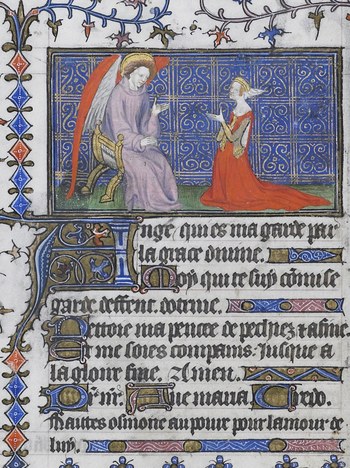 Ange qui es ma garde par
la grace diuine.
Moy qui te suy cōmise
garde deffent. gouerne.
Nettoie ma pencee de pechiez afine
Et me soies compains. Jusque a
la gloire fine. Amen.
Pr nr. Aue maria. Credo.
Faites osmone au poure pour lamour de
luy.